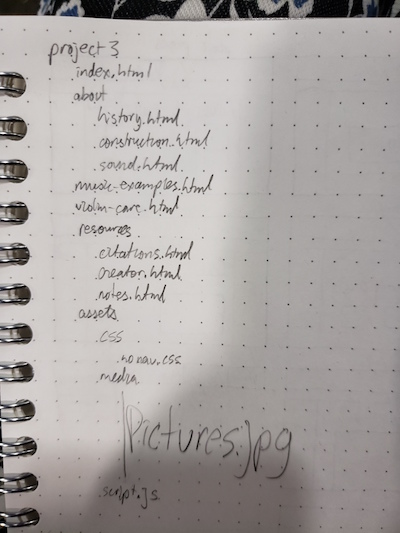 project 3
index.html
about
history.html
construction.html
sound.html
music-examples.html
violin-care.html
resources
citations.html
creator.html
notes.html
assets
css
nonav.css
media
Pictures.jpg
script.js